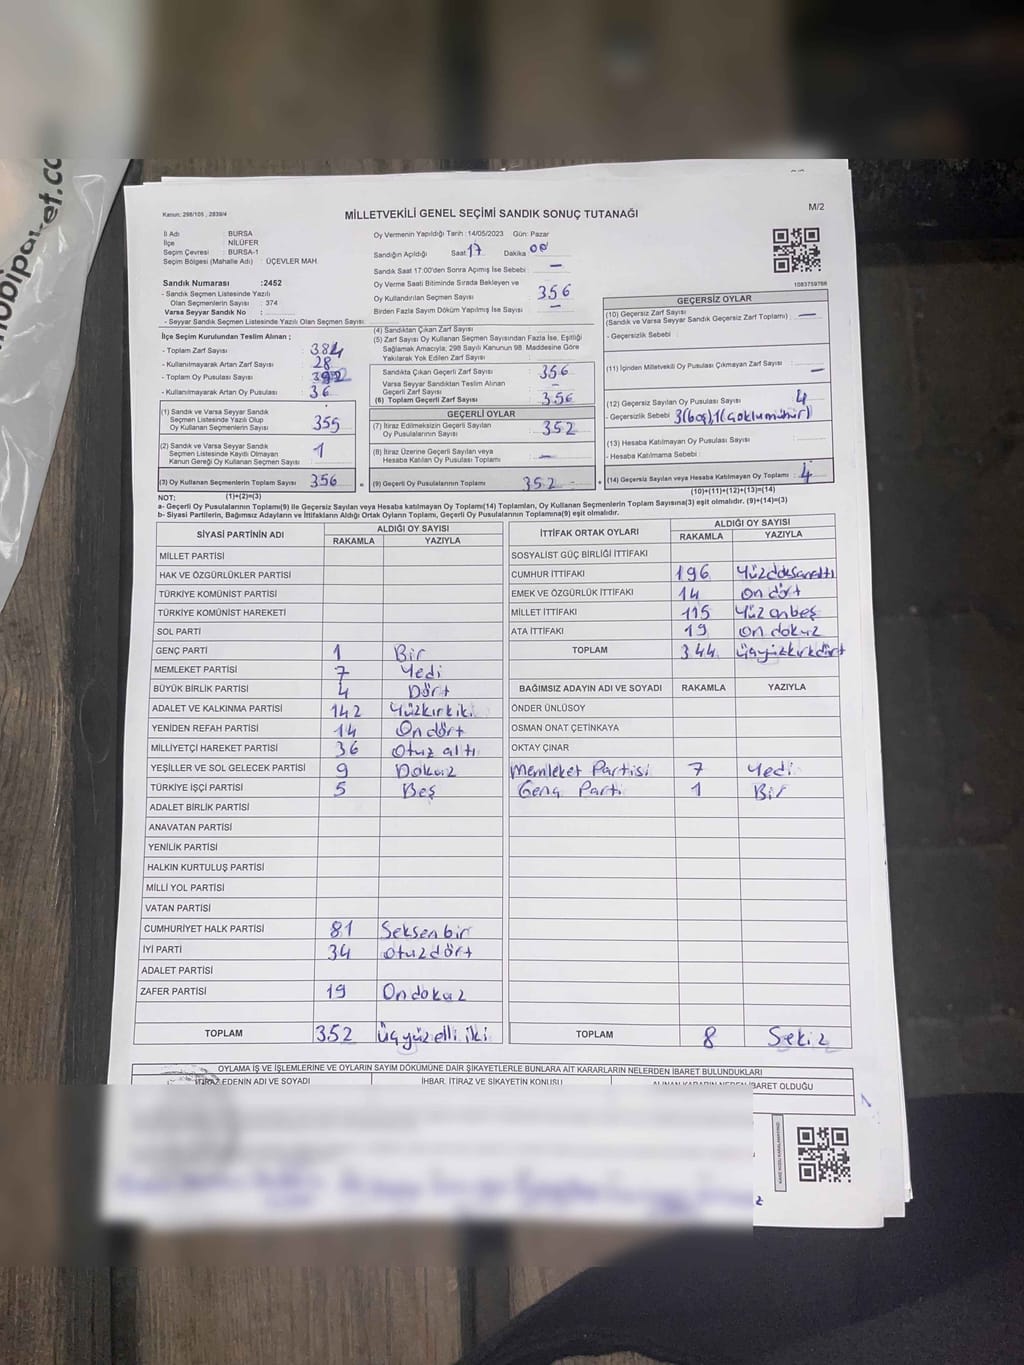 Kanun: 298/105 , 2839/4
MİLLETVEKİLİ GENEL SEÇİMİ SANDIK SONUÇ TUTANAĞI
M/2
İl Adı : BURSA
İlçe : NİLÜFER
Seçim Çevresi : BURSA-1
Seçim Bölgesi (Mahalle Adı) : ÜÇEVLER MAH.
Sandık Numarası :2452
- Sandık Seçmen Listesinde Yazılı
Olan Seçmenlerin Sayısı : 374
Varsa Seyyar Sandık No :
- Seyyar Sandık Seçmen Listesinde Yazılı Olan Seçmen Sayısı:
İlçe Seçim Kurulundan Teslim Alınan ;
- Toplam Zarf Sayısı : 384
- Kullanılmayarak Artan Zarf Sayısı : 28
- Toplam Oy Pusulası Sayısı :
- Kullanılmayarak Artan Oy Pusulası : 36
(1) Sandık ve Varsa Seyyar Sandık
Seçmen Listesinde Yazılı Olup
Oy Kullanan Seçmenlerin Sayısı : 355
(2) Sandık ve Varsa Seyyar Sandık
Seçmen Listesinde Kayıtlı Olmayan
Kanun Gereği Oy Kullanan Seçmen Sayısı : 1
(3) Oy Kullanan Seçmenlerin Toplam Sayısı : 356
Oy Vermenin Yapıldığı Tarih :14/05/2023 Gün: Pazar
Sandığın Açıldığı Saat 17 Dakika 00
Sandık Saat 17:00'den Sonra Açılmış İse Sebebi : —
Oy Verme Saati Bitiminde Sırada Bekleyen ve
Oy Kullandırılan Seçmen Sayısı : 356
Birden Fazla Sayım Döküm Yapılmış İse Sayısı : —
(4) Sandıktan Çıkan Zarf Sayısı :
(5) Zarf Sayısı Oy Kullanan Seçmen Sayısından Fazla İse, Eşitliği
Sağlamak Amacıyla; 298 Sayılı Kanunun 98. Maddesine Göre
Yakılarak Yok Edilen Zarf Sayısı :
Sandıkta Çıkan Geçerli Zarf Sayısı : 356
Varsa Seyyar Sandıktan Teslim Alınan
Geçerli Zarf Sayısı : —
(6) Toplam Geçerli Zarf Sayısı : 356
GEÇERLİ OYLAR
(7) İtiraz Edilmeksizin Geçerli Sayılan
Oy Pusulalarının Sayısı : 352
(8) İtiraz Üzerine Geçerli Sayılan veya
Hesaba Katılan Oy Pusulası Toplamı : —
(9) Geçerli Oy Pusulalarının Toplamı : 352
1083759766
GEÇERSİZ OYLAR
(10) Geçersiz Zarf Sayısı
(Sandık ve Varsa Seyyar Sandık Geçersiz Zarf Toplamı) : —
- Geçersizlik Sebebi :
(11) İçinden Milletvekili Oy Pusulası Çıkmayan Zarf Sayısı : —
(12) Geçersiz Sayılan Oy Pusulası Sayısı : 4
- Geçersizlik Sebebi : 3(boş)1(çoklumühür)
(13) Hesaba Katılmayan Oy Pusulası Sayısı :
- Hesaba Katılmama Sebebi :
(14) Geçersiz Sayılan veya Hesaba Katılmayan Oy Toplamı : 4
(1)+(2)=(3)
(10)+(11)+(12)+(13)=(14)
NOT:
a- Geçerli Oy Pusulalarının Toplamı(9) ile Geçersiz Sayılan veya Hesaba katılmayan Oy Toplamı(14) Toplamları, Oy Kullanan Seçmenlerin Toplam Sayısına(3) eşit olmalıdır. (9)+(14)=(3)
b- Siyasi Partilerin, Bağımsız Adayların ve İttifakların Aldığı Ortak Oyların Toplamı, Geçerli Oy Pusulalarının Toplamına(9) eşit olmalıdır.
SİYASİ PARTİNİN ADI ALDIĞI OY SAYISI
RAKAMLA YAZIYLA
MİLLET PARTİSİ
HAK VE ÖZGÜRLÜKLER PARTİSİ
TÜRKİYE KOMÜNİST PARTİSİ
TÜRKİYE KOMÜNİST HAREKETİ
SOL PARTİ
GENÇ PARTİ 1 Bir
MEMLEKET PARTİSİ 7 Yedi
BÜYÜK BİRLİK PARTİSİ 4 Dört
ADALET VE KALKINMA PARTİSİ 142 Yüzkırkiki
YENİDEN REFAH PARTİSİ 14 On dört
MİLLİYETÇİ HAREKET PARTİSİ 36 Otuz altı
YEŞİLLER VE SOL GELECEK PARTİSİ 9 Dokuz
TÜRKİYE İŞÇİ PARTİSİ 5 Beş
ADALET BİRLİK PARTİSİ
ANAVATAN PARTİSİ
YENİLİK PARTİSİ
HALKIN KURTULUŞ PARTİSİ
MİLLİ YOL PARTİSİ
VATAN PARTİSİ
CUMHURİYET HALK PARTİSİ 81 Seksen bir
İYİ PARTİ 34 otuzdört
ADALET PARTİSİ
ZAFER PARTİSİ 19 On dokuz
TOPLAM 352 üçyüzelli iki
İTTİFAK ORTAK OYLARI ALDIĞI OY SAYISI
RAKAMLA YAZIYLA
SOSYALİST GÜÇ BİRLİĞİ İTTİFAKI
CUMHUR İTTİFAKI 196 Yüzdoksanaltı
EMEK VE ÖZGÜRLÜK İTTİFAKI 14 On dört
MİLLET İTTİFAKI 115 Yüz onbeş
ATA İTTİFAKI 19 on dokuz
TOPLAM 344 üçyüzkırkdört
BAĞIMSIZ ADAYIN ADI VE SOYADI RAKAMLA YAZIYLA
ÖNDER ÜNLÜSOY
OSMAN ONAT ÇETİNKAYA
OKTAY ÇINAR
Memleket Partisi 7 Yedi
Genç Parti 1 Bir
TOPLAM 8 Sekiz
OYLAMA İŞ VE İŞLEMLERİNE VE OYLARIN SAYIM DÖKÜMÜNE DAİR ŞİKAYETLERLE BUNLARA AİT KARARLARIN NELERDEN İBARET BULUNDUKLARI
İTİRAZ EDENİN ADI VE SOYADI İHBAR, İTİRAZ VE ŞİKAYETİN KONUSU ALINAN KARARIN NEDEN İBARET OLDUĞU